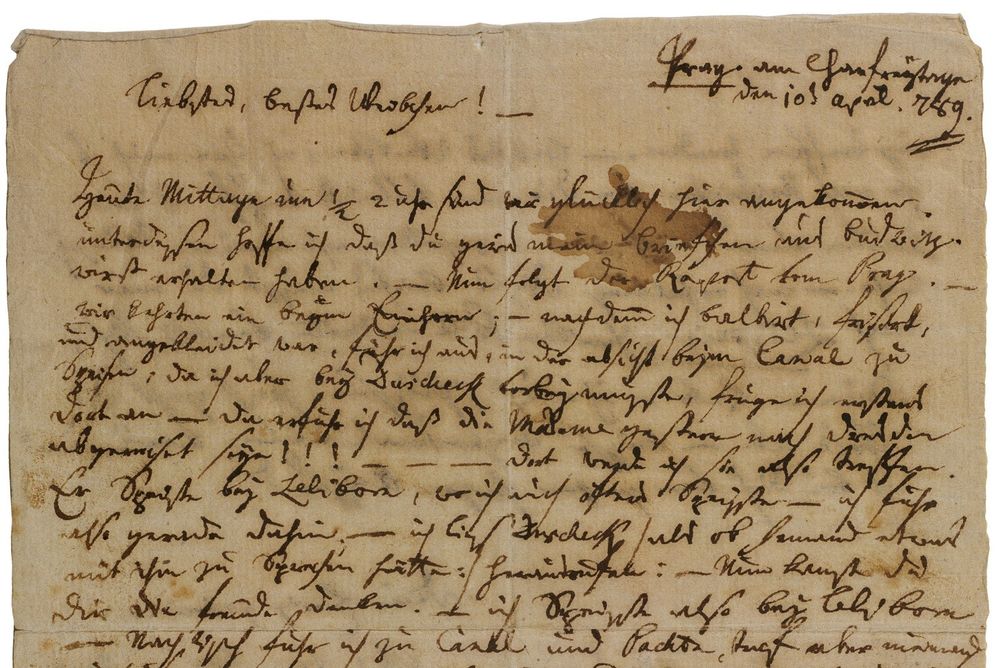 Prag. am Charfreytage
den 10t April. 789.
Liebstes, bestes Weibchen! —
Heute Mittags um 1/2 2 uhr sind wir glücklich hier angekommen.
unterdessen hoffe ich daß du gewis mein briefchen aus budwitz.
wirst erhalten haben. — Nun folgt der Raport vom Prag. —
wir kehrten ein beym Einhorn; — nachdemm ich balbirt, frisirt,
und angekleidet war, fuhr ich aus, in der absicht beym Canal zu
Speisen; da ich aber bey Duscheck vorbey muste, frug ich erstens
dort an — da erfuhr ich daß die Madame gestern nach dresden
abgereiset seye!!! — — — dort werde ich sie also treffen.
Er Speiste bey Leliborn, wo ich auch öfters Speiste — ich fuhr
also gerade dahin. — ich ließ Duscheck /als ob Jemand etwas
mit ihm zu Sprechen hätte:/ herausrufen: — Nun kanst du
dir die freude denken. — ich Speiste also bey Leliborn
— Nach Tisch fuhr ich zu Canal und Pachta, traf aber niemand